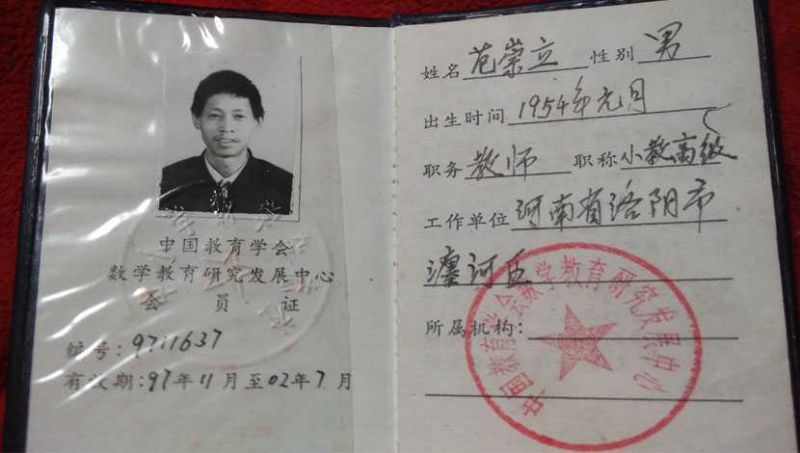 中国教育学会
数学教育研究发展中心
会 员 证
编号:9711637
有效期:97年11月至02年7月
姓名 范崇立 性别 男
出生时间 1954年元月
职务 教师 职称 小教高级
工作单位 河南省洛阳市
瀍河区
所属机构:
中国教育学会数学教育研究发展中心